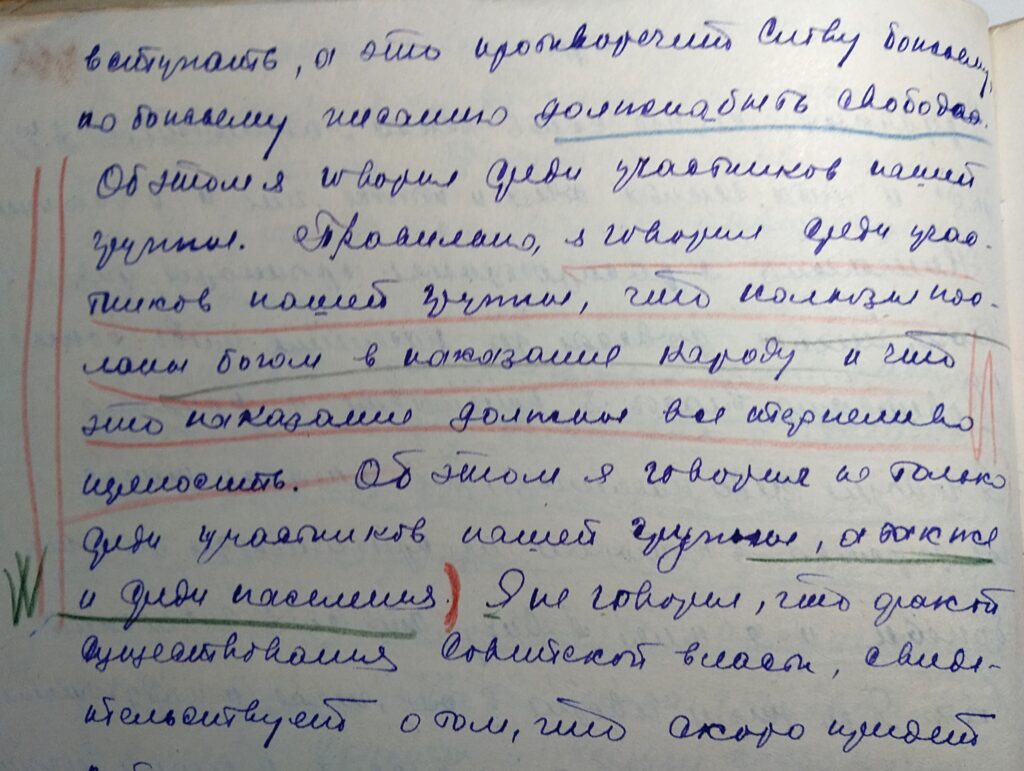 вступать, а это противоречит слову божьему,
по божьему писанию должна быть свобода.
Об этом я говорил среди участников нашей
группы. Правильно, я говорил среди учас-
тников нашей группы, что колхозы пос-
ланы богом в наказание народу и что
это наказание должны все терпеливо
переносить. Об этом я говорил не только
среди участников нашей группы, а также
и среди населения. Я не говорил, что факт
существования Советской власти, свиде-
тельствует о том, что скоро придет